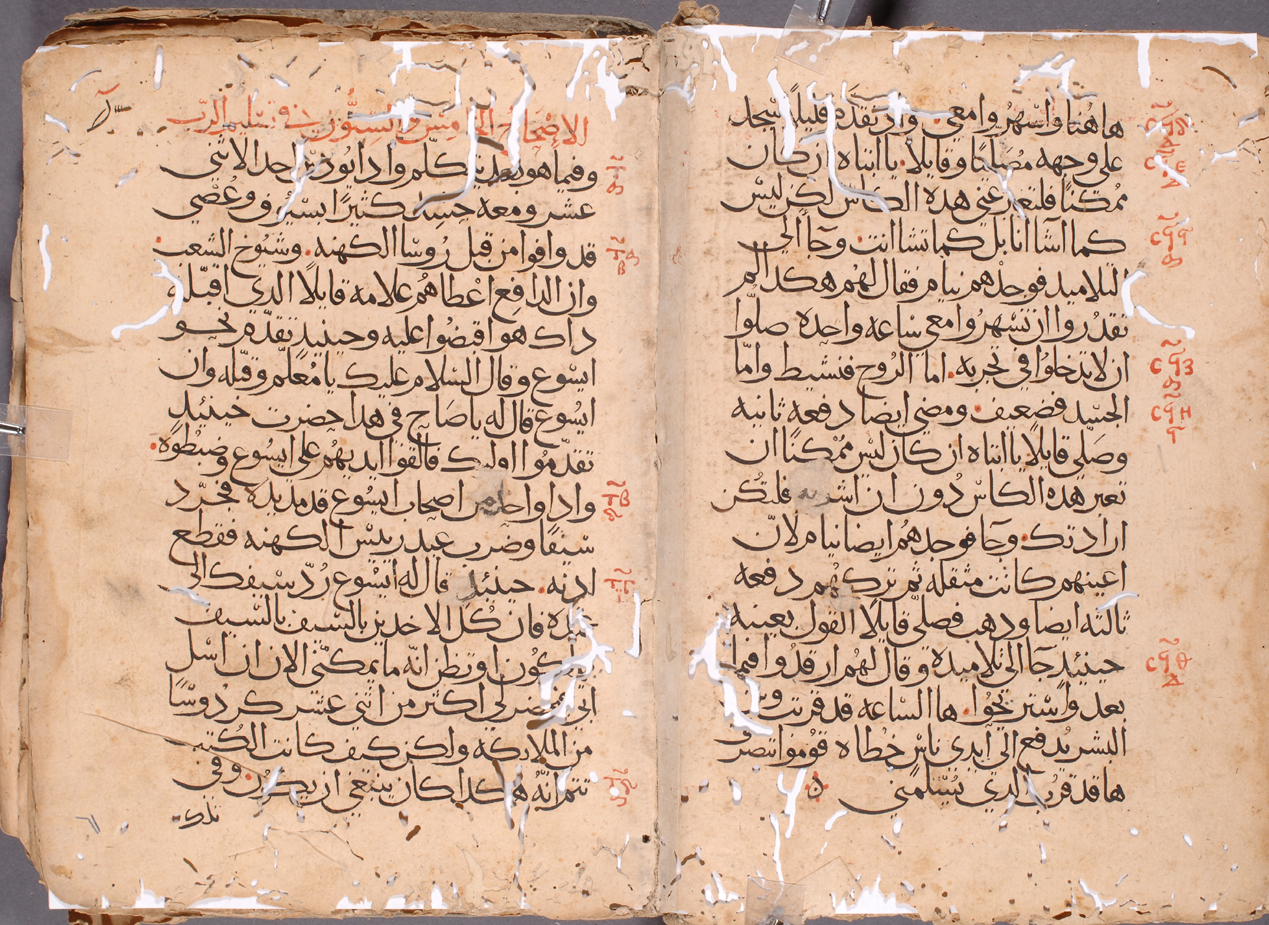 هاهنا واسهروا معي. واد تقدم قليلاً سجد
على وجهه مصليا وقايلاً. يا ابتاه ان كان
ممكناً فلتعبر عني هده الكاس لكن ليس
كما اشا انا بل كما تشا انت وجا الى
التلاميد فوجدهم نيام فقال لهم هكدا لم
تقدروا ان تسهروا معي ساعه واحده صلّوا
ان لا تدخلوا في تجربه. اما الروح فنشيط وامّا
الجسد فضعيف. ومضى ايضا دفعه ثانيه
وصلى قايلاً يا ابتاه ان كان ليس ممكناً ان
تعبر هده الكاس دون ان اشربه فلتكن
ارادتك. وجا فوجدهم ايضا نيام لانّ
اعينهم كانت مثقله ثم تركهم دفعه
ثالثه ايضا ودهب فصلّى قايلاً القول بعينه
حينيد جا الى تلاميده وقال لهم ارقدوا فيما
بعد واستريحوا. ها الساعه قد قربت وابن
البشر يدفع الى ايدي ناس خطاه قوموا
ها قد قرب الدي يسلمني ٥
الاصحاح الخامس والستون في تسليم الرب
وفيما هو يتكلم وادا يودس احد الاتني
عشر ومعه حينيد كثيراً بسيوف وعُصي
قد وافوا من قبل روسا الكهنه. وشيوخ الشعب.
وان الدافع اعطاهم علامه قايلاً الدي اقبّله
داك هو اقبضوا عليه وحينيد تقدّم نحو
ايسوع وقال السلام عليك يا معلّم وقبّله وان
ايسوع قال له يا صاح في هدا حضرت حينيد
تقدّموا اوليك فالقوا ايديهم على ايسوع وضبطوه.
وادا واحد من اصحاب ايسوع قد مد يده فجرّد
سيفاً وضرب عبد رييس الكهنه فقطع
ادنه. حينيد قال له ايسوع رُدّ سيفك الى
غمده فان كُل الاخدين بالسيف بالسيف
يهلكون او تظن انّه ما يمكنّي الان ان اسل
ابي فيحضر لي اكثر من اثني عشر كردوسًا
من الملايكه ولكن كيف كانت الكتب
تتم انّه هكدا كان ينبغي ان يكون. وفي
تلك